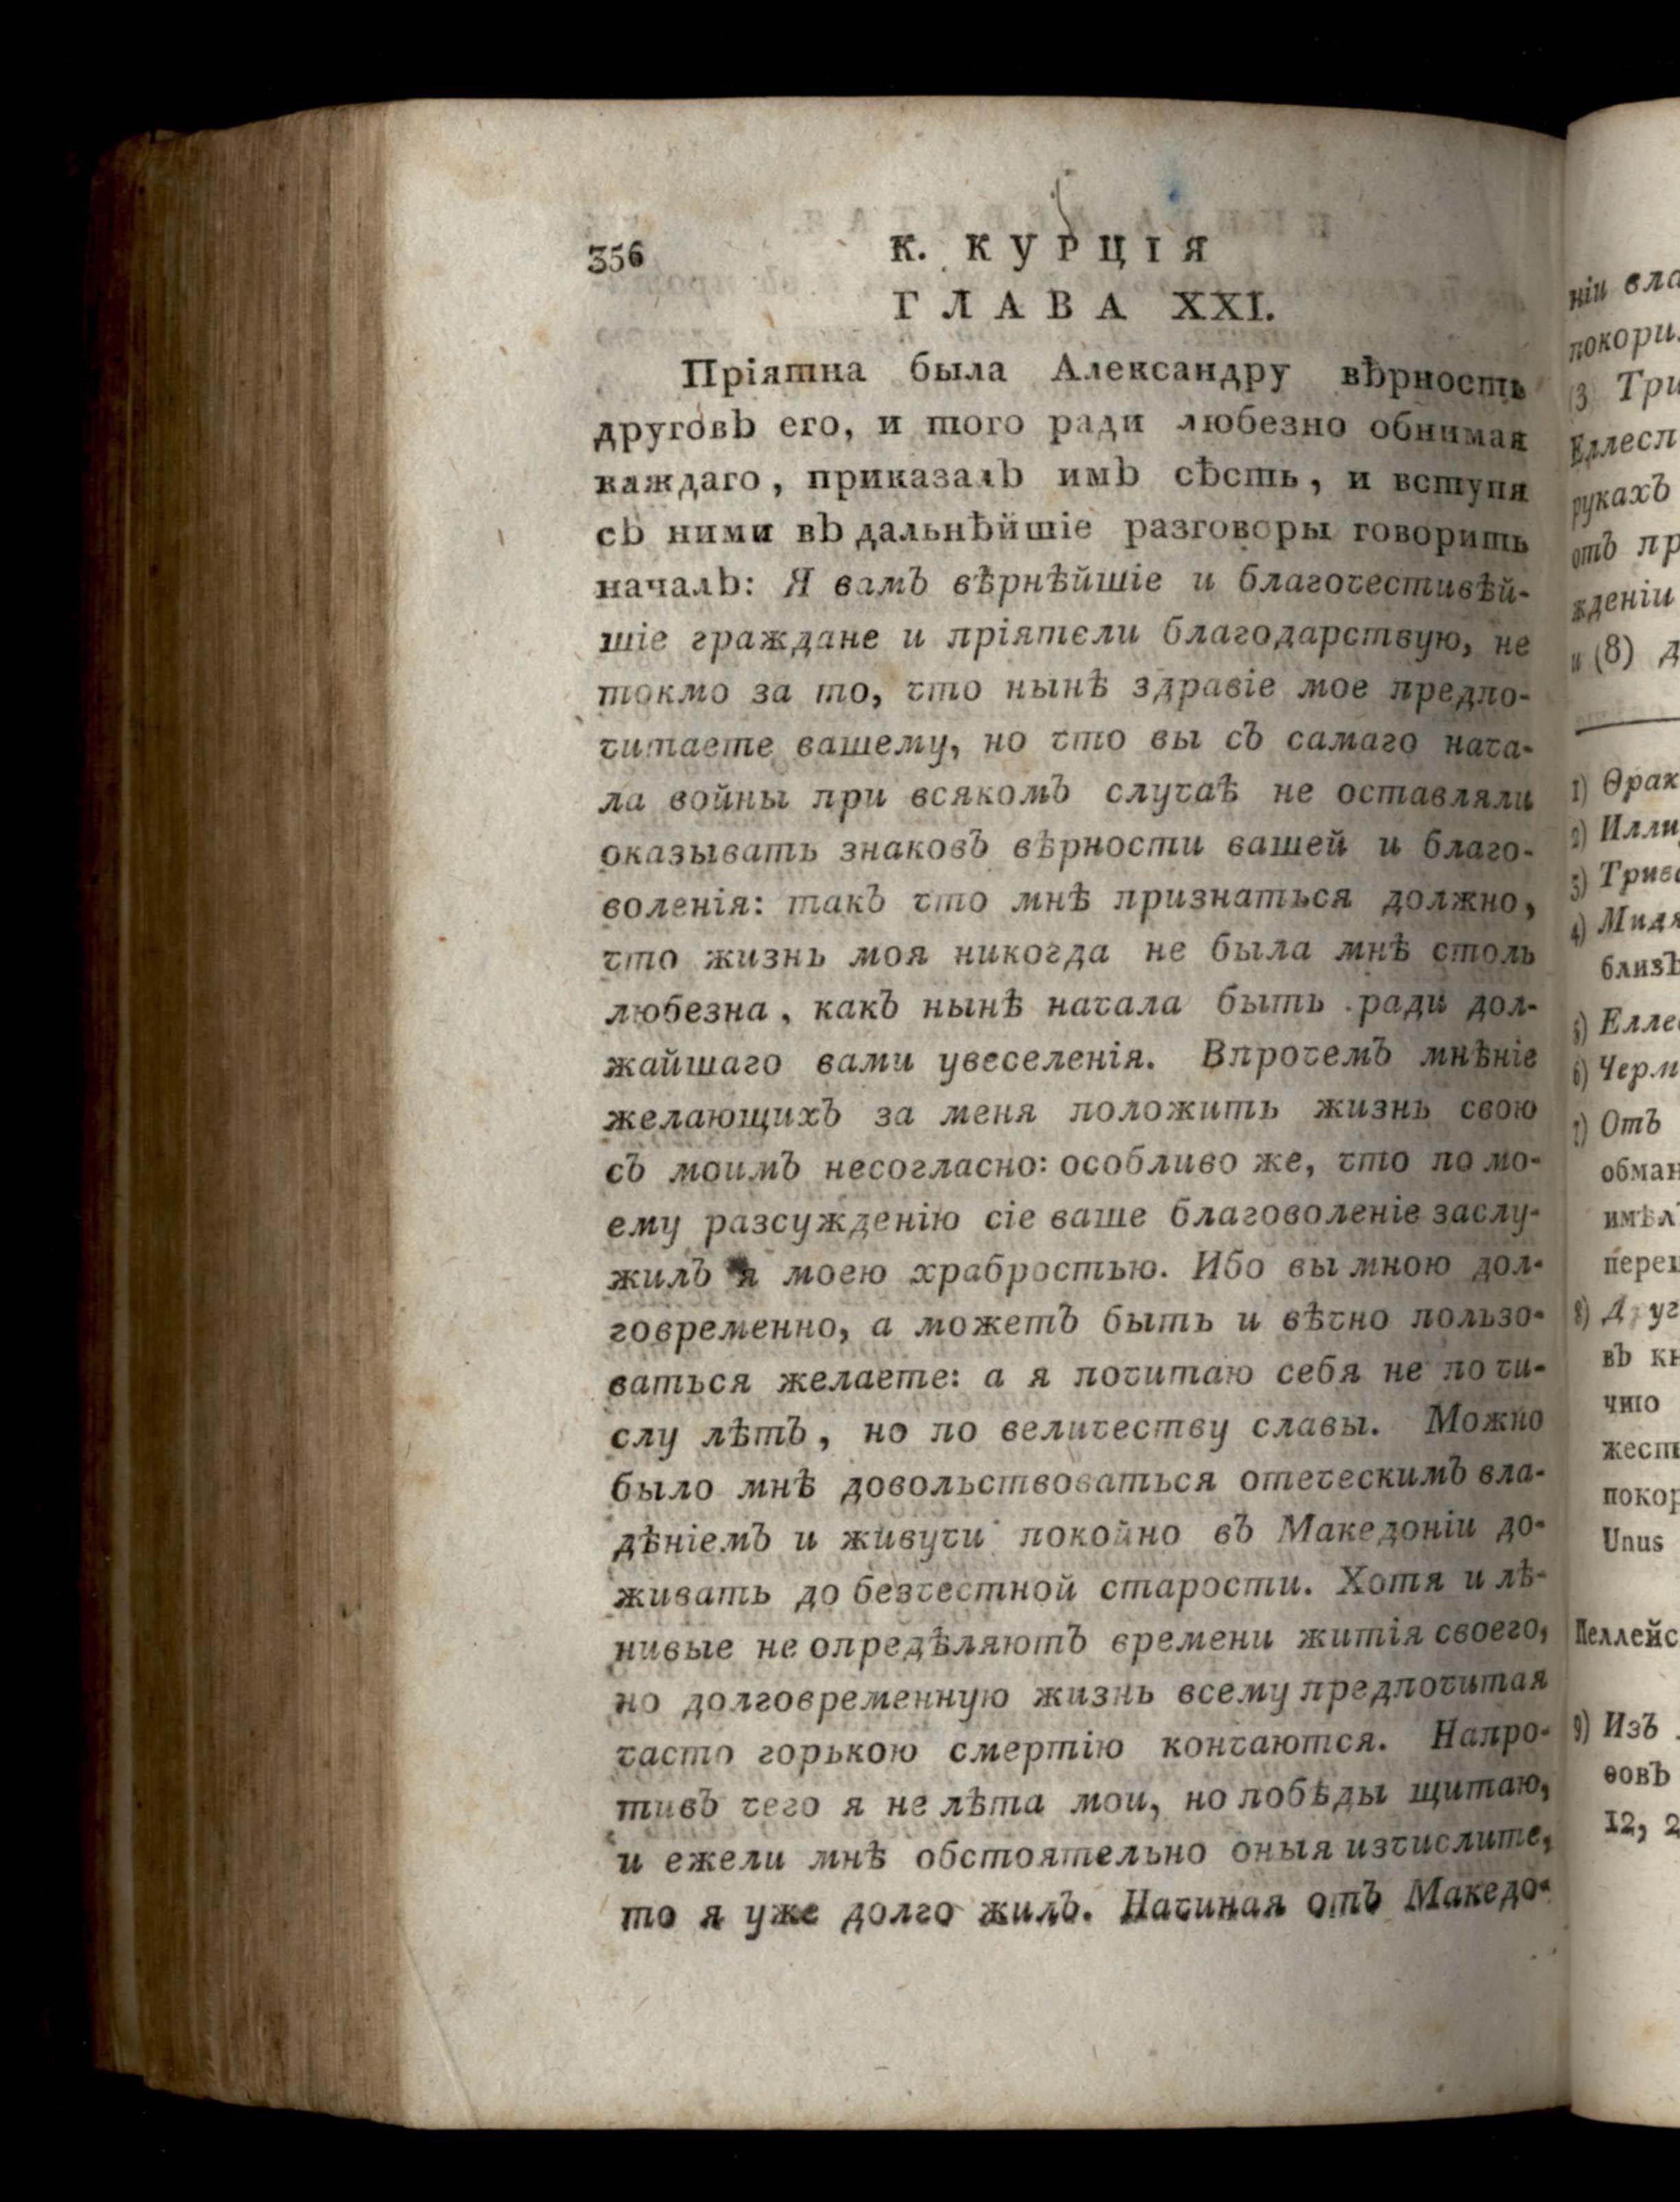 356
К. КУРЦІЯ
ГЛАВА XXI.
Пріятна была Александру вѣрность
друговъ его, и того ради любезно обнимая
каждаго, приказалъ имъ сѣсть, и вступя
съ ними въ дальнѣйшіе разговоры говорить
началъ: Я вамъ вѣрнѣйшіе и благочестивѣй-
шіе граждане и пріятели благодарствую, не
токмо за то, что нынѣ здравіе мое предпо-
читаете вашему, но что вы съ самаго нача-
ла войны при всякомъ случаѣ не оставляли
оказывать знаковъ вѣрности вашей и благо-
воленія: такъ что мнѣ признаться должно,
что жизнь моя никогда не была мнѣ столь
любезна, какъ нынѣ начала быть ради дол-
жайшаго вами увеселенія. Впрочемъ мнѣніе
желающихъ за меня положить жизнь свою
съ моимъ несогласно: особливо же, что по мо-
ему разсужденію сіе ваше благоволеніе заслу-
жилъ я моею храбростью. Ибо вы мною дол-
говременно, а можетъ быть и вѣчно пользо-
ваться желаете: а я почитаю себя не по чи-
слу лѣтъ, но по величеству славы. Можно
было мнѣ довольствоваться отеческимъ вла-
дѣніемъ и живучи покойно въ Македоніи до-
живать до безчестной старости. Хотя и лѣ-
нивые не опредѣляютъ времени житія своего,
но долговременную жизнь всему предпочитая
часто горькою смертію кончаются. Напро-
тивъ чего я не лѣта мои, но побѣды щитаю,
и ежели мнѣ обстоятельно оныя изчислите,
то я уже долго жилъ. Начиная отъ Македо-
ніи
покори
(3 Три
Еллесп
рукахъ
отъ
жденіи
и (8)
1) Ѳрак
2) Илли
4) Мидя
близъ
6) Черм
7) Отъ
обман
имѣл
въ
покор
Unus
Пеллейс
9) Изъ
ѳовъ
12, 2